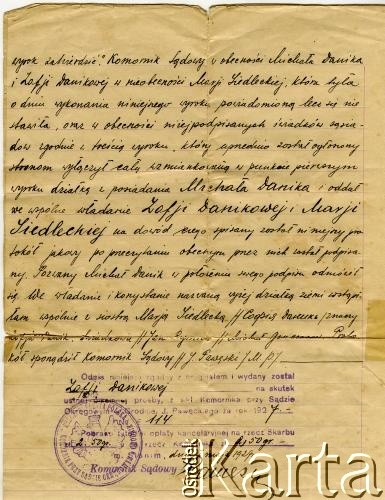 wyrok zatwierdzić." Komornik Sądowy w obecności Michała Danika
i Zofji Danikowej w nieobecności Marji Siedleckiej, która była
o dniu wykonania niniejszego wyroku powiadomioną lecz się nie
stawiła, oraz w obecności niżej podpisanych świadków sąsia-
dów zgodnie z treścią wyroku, który uprzednio został ogłoszony
stronom wyłączył całą wzmiankowaną w punkcie pierwszym
wyroku działkę z posiadania Michała Danika i oddał
we wspólne władanie Zofji Danikowej i Marji
Siedleckiej na dowód czego spisany został niniejszy pro-
tokół jakowy po przeczytaniu obecnym przez nich został podpisa-
ny. Pozwany Michał Danik w położeniu swego podpisu odmówił
się. We władanie i korzystanie nazwaną wyżej działką ziemi wstąpi-
łam wspólnie z siostrą Marją Siedlecką
Proto-
kół sporządził Komornik Sądowy // J. Pawęski /M.P./
Odpis niniejszy zgodny z oryginałem i wydany został
Zofji Danikowej na skutek
ustnej prośby, z akt Komornika przy Sądzie
Okręgowym w Grodnie, J. Pawęskiego za rok 1927
114
opłaty kancelaryjnej na rzecz Skarbu
2.50 gr. na rzecz 50 gr.
dn. 1927
Komornik Sądowy
ośrodek
Karta